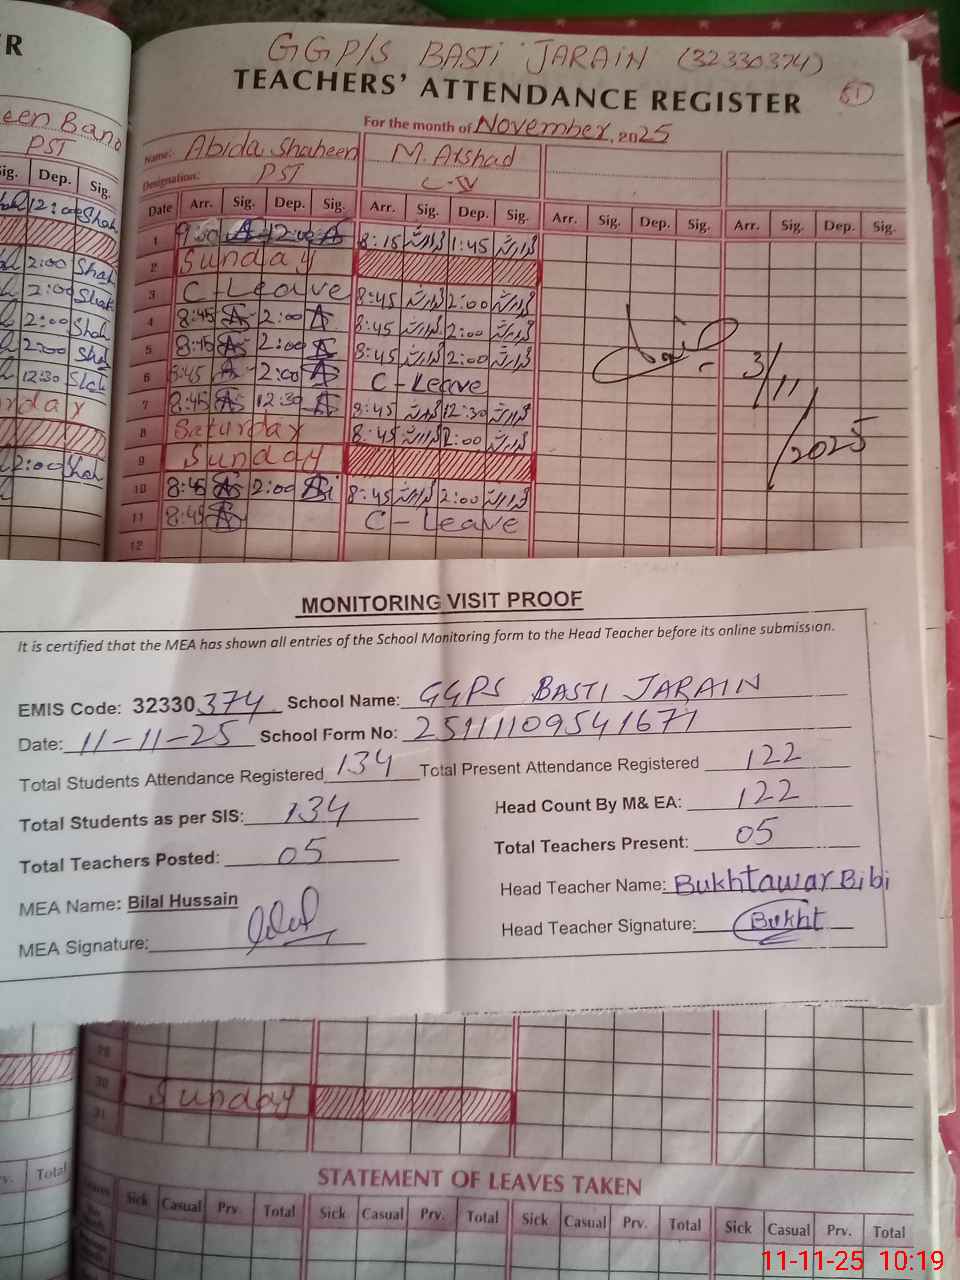 R
GGP/S BASTI JARAIN (32330374)
TEACHERS' ATTENDANCE REGISTER
51
For the month of November, 2025
een Bano
PST
Name: Abida Shaheen M. Arshad
Designation: PST C-IV
Sig. Dep. Sig.
Date Arr. Sig. Dep. Sig. Arr. Sig. Dep. Sig. Arr. Sig. Dep. Sig. Arr. Sig. Dep. Sig.
12:00 Shah
1 9:00 A 12:00 A 8:15 1:45
2 Sunday
2:00 Shah
3 C-Leave 8:45 2:00
2:00 Shah
4 8:45 A 2:00 A 8:45 2:00
2:00 Shah
5 8:45 A 2:00 A 8:45 2:00
2:00 Shah
6 8:45 A 2:00 A C-Leave
12:30 Shah
7 8:45 A 12:30 A 8:45 12:30
rday
8 Saturday 8:45 2:00
9 Sunday
2:00 Shah
10 8:45 A 2:00 A 8:45 2:00
11 8:45 A C-Leave
12
3/11/2025
MONITORING VISIT PROOF
It is certified that the MEA has shown all entries of the School Monitoring form to the Head Teacher before its online submission.
EMIS Code: 32330374 School Name: GGPS BASTI JARAIN
Date: 11-11-25 School Form No: 25111109541671
Total Students Attendance Registered 134 Total Present Attendance Registered 122
Total Students as per SIS: 134 Head Count By M& EA: 122
Total Teachers Posted: 05 Total Teachers Present: 05
MEA Name: Bilal Hussain Head Teacher Name: Bukhtawar Bibi
MEA Signature: Head Teacher Signature: Bukht
29
30 Sunday
31
STATEMENT OF LEAVES TAKEN
v. Total
Sick Casual Prv. Total Sick Casual Prv. Total Sick Casual Prv. Total Sick Casual Prv. Total
11-11-25 10:19